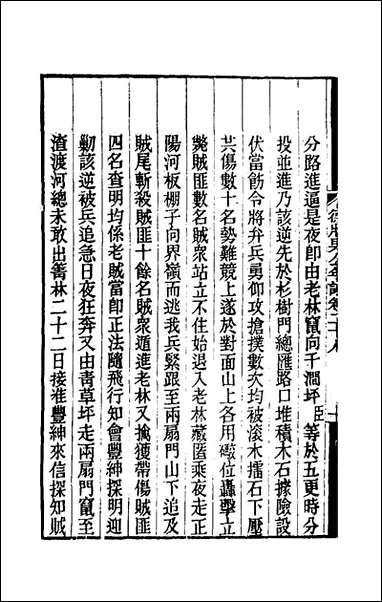 分路進逼是夜卽由老林竄向千澗坪臣等於五更時分
投並進乃該逆先於杉樹門總匯路口堆積木石據險設
伏當飭令將弁兵勇仰攻搶撲數次均被滾木擂石下壓
共傷數十名勢難競上遂於對面山上各用礮位轟擊立
斃賊匪數名賊眾站立不住始退入老林藏匿乘夜走正
陽河板棚子向界嶺而逃我兵緊跟至兩扇門山下追及
賊尾斬殺賊匪十餘名賊眾遁進老林又擒獲帶傷賊匪
四名查明均係老賊當卽正法隨飛行知會豐紳探明迎
勦該逆被兵追急日夜狂奔又由青草坪走兩扇門竄至
渣渡河總未敢出箐林二十二日接准豐紳來信探知賊